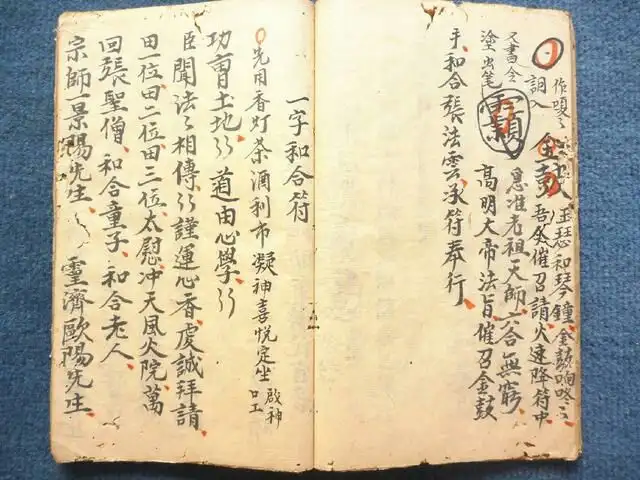 作嗅
詞入金鼓玉琴和琴鐘金鼓响咚
吾今催召請火速降符中
又書令
塗出笔
息准老祖大師一谷無窮
高明大帝法旨催召金鼓
手和合張法雲承符奉行
一字和合符
先用香灯茶酒利市凝神喜悦定坐啟神
口工
功曺土地道由心學
臣聞法相傳謹運心香虔誠拜請
田一位田二位田三位太慰冲天風火院萬
回張聖僧和合童子和合老人
宗師一景陽先生靈濟歐陽先生